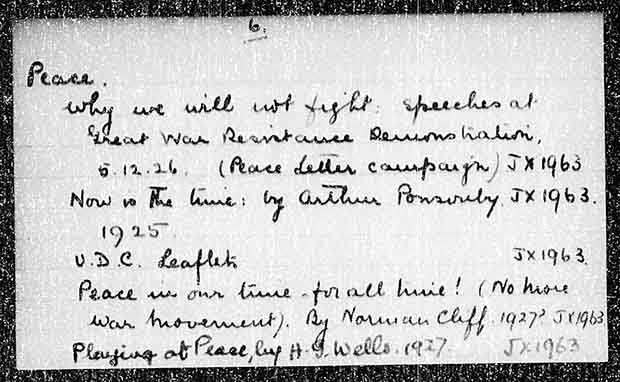 6.
Peace.
Why we will not fight: speeches at
Great War Resistance Demonstration,
5.12.26. (Peace Letter campaign) JX1963
Now is the time: by Arthur Ponsonby. JX1963.
1925.
U.D.C. Leaflets JX1963.
Peace in our time - for all time! (No more
War Movement). By Norman Cliff. 1927? JX1963
Playing at Peace, by H.G. Wells. 1927. JX1963